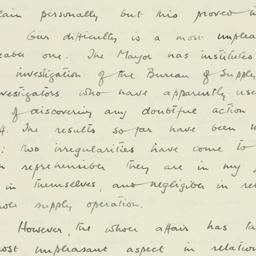 lain personally but his proved i
Our difficulty is a most unplea
eaker one. The Mayor has institutes
investigation of the Bureau of Supply
vestigators who have apparently use
of discovering any doubtful action
4. The results so far have been
: Two irregularities have come to
n reprehensible they are in my
in themselves, and negligible in re
hole supply operation.
However, the whole affair has ta
ost unpleasant aspect in relation